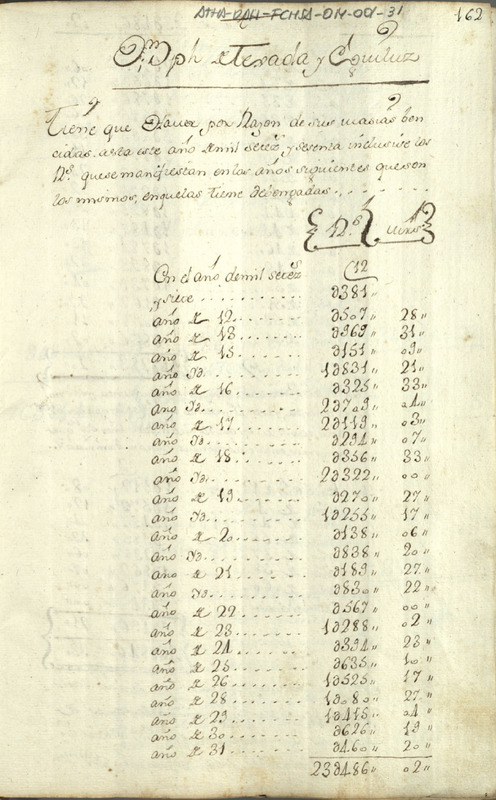 ATHA-DAH-FCHSA-DM-001-31
162
Dn Jph de Texada y Eguiluz
Tiene que Haver, por Razon de sus ucasias ben
cidas asta este año de mil setezs y sesenta inclusive los
Rs que se manifiestan en los años siguientes que son
los mismos, en que las tiene debengadas.
Rs
En el año de mil setezs (12
y siete 381"
año de 12 507" 28"
año de 13 969" 31"
año de 15 151" 09"
año Yd. 1831" 21"
año de 16 325" 33"
año Yd. 2709" 04"
año de 17 2119" 03"
año Yd. 294" 07"
año de 18 356" 33"
año Yd. 2322" 00"
año de 19 270" 27"
año Yd. 1255" 17"
año de 20 138" 06"
año Yd. 838" 20"
año de 21 189" 27"
año Yd. 830" 22"
año de 22 567" 00"
año de 23 1288" 02"
año de 24 394" 23"
año de 25 635" 10"
año de 26 1525" 17"
año de 28 1080" 27"
año de 29 1415" 04"
año de 30 626" 19"
año de 31 460" 20"
23486" 02"